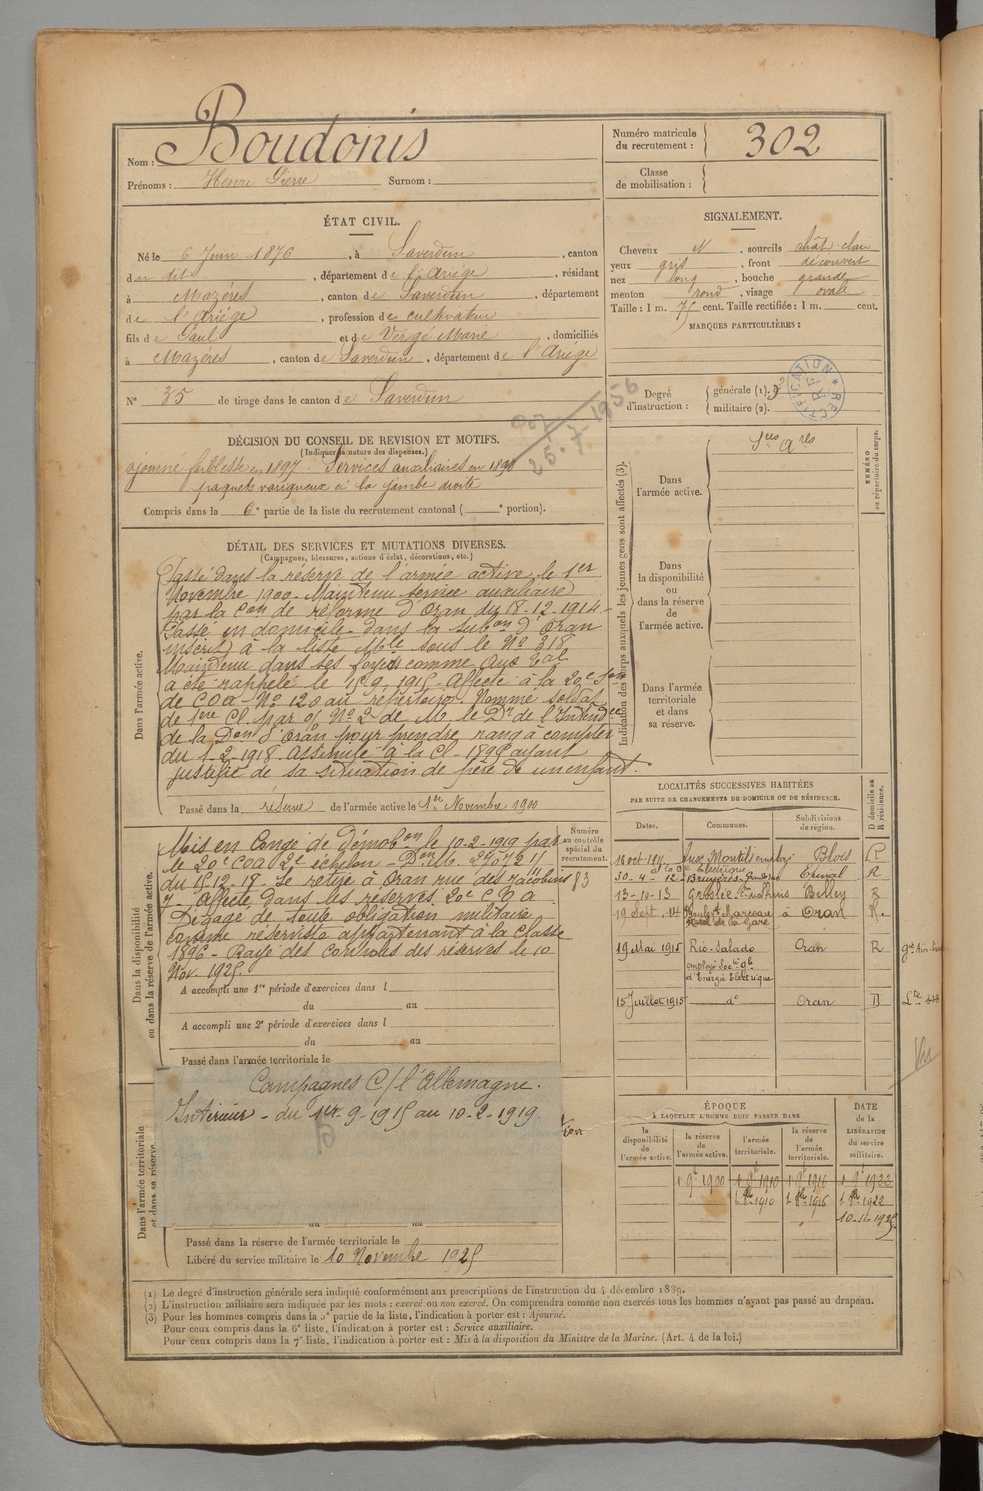 Nom : Boudonis
Prénoms : Henri Pierre Surnom :
Numéro matricule
du recrutement : 302
Classe
de mobilisation :
ÉTAT CIVIL.
Né le 6 Juin 1876, à Saverdun, canton
du dit, département de l'Ariège, résidant
à Mazères, canton de Saverdun, département
de l'Ariège, profession de cultivateur
fils de Paul et de Vergé Marie, domiciliés
à Mazères, canton de Saverdun, département de l'Ariège
N° 35 de tirage dans le canton de Saverdun
SIGNALEMENT.
Cheveux N, sourcils chât. clair
yeux gris, front découvert
nez long, bouche grande
menton rond, visage ovale
Taille : 1 m. 75 cent. Taille rectifiée : 1 m. cent.
MARQUES PARTICULIÈRES :
Degré
d'instruction :
générale (1).
militaire (2).
RECTIFICATION
25-7-1956
DÉCISION DU CONSEIL DE REVISION ET MOTIFS.
(Indiquer la nature des dispenses.)
ajourné faiblesse en 1897. Services auxiliaires en 1898
paquets variqueux à la jambe droite
Compris dans la 6e partie de la liste du recrutement cantonal ( e portion).
DÉTAIL DES SERVICES ET MUTATIONS DIVERSES.
(Campagnes, blessures, actions d'éclat, décorations, etc.)
Dans l'armée active.
Passé dans la réserve de l'armée active le 1er
Novembre 1900. Maintenu service auxiliaire
par la Con de réforme d'Oran du 18-12-1914-
Passé en domicile dans la subon d'Oran
inscrit à la liste Mle sous le N° 318
Maintenu dans ses foyers comme Aux
a été rappelé le 15 9 1915 Affecté à la 20e Son
de COA - N° 120 au répertoire. Nommé soldat
de 1ere Cl. par N° 2 de M. le Dr de l'Intendce
de la Don d'Oran pour prendre rang à compter
du 1-2-1918. Assimilé à la Cl. 1896 ayant
justifié de sa situation de père de un enfant.
Passé dans la réserve de l'armée active le 1er Novembre 1900
Indication des corps auxquels les jeunes gens sont affectés (3).
NUMÉRO
au répertoire du corps.
Dans
l'armée active.
Sces Ares
Dans
la disponibilité
ou
dans la réserve
de
l'armée active.
Dans l'armée
territoriale
et dans
sa réserve.
Dans la disponibilité
ou dans la réserve de l'armée active.
Mis en Congé de démobon le 10-2-1919 par
le 20e COA 2e échelon -
du 15-12-18. Se retire à Oran rue des Jacobins
7. Affecté dans les réserves 20e C O A
Dégagé de toute obligation militaire
comme réserviste appartenant à la classe
1896 - Rayé des Contrôles des réserves le 10
Nov. 1925.
Numéro
au contrôle
spécial du
recrutement.
83
A accompli une 1re période d'exercices dans l
du au
A accompli une 2e période d'exercices dans l
du au
Passé dans l'armée territoriale le
LOCALITÉS SUCCESSIVES HABITÉES
PAR SUITE DE CHANGEMENTS DE DOMICILE OU DE RÉSIDENCE.
Dates. Communes. Subdivisions de région. D domicile ou R résidence.
18 oct 1911 Aux Montils employé Blois R
30-4-12 Bruyères Epinal R
13-10-13 Groslée Belley R
19 Sept. 14 Boulevt Marceau à Oran R.
Hôtel de la Gare
19 Mai 1915 Rio-Salado Oran R
employé Socté gle
d'Energie Electrique
15 Juillet 1915 do Oran D
Dans l'armée territoriale
et dans sa réserve.
Campagnes C/ l'Allemagne.
Intérieur - du 1er-9-1915 au 10-2-1919
Passé dans la réserve de l'armée territoriale le
Libéré du service militaire le 10 Novembre 1925
ÉPOQUE
À LAQUELLE L'HOMME DOIT PASSER DANS
la disponibilité de l'armée active. la réserve de l'armée active. l'armée territoriale. la réserve de l'armée territoriale. DATE de la LIBÉRATION du service militaire.
1 9e 1900 1 9e 1910 1 9e 1916 1 9e 1922
1 8re 1910 1 8re 1916 1 8re 1922
10-11-1925
(1) Le degré d'instruction générale sera indiqué conformément aux prescriptions de l'instruction du 4 décembre 1889.
(2) L'instruction militaire sera indiquée par les mots : exercé ou non exercé. On comprendra comme non exercés tous les hommes n'ayant pas passé au drapeau.
(3) Pour les hommes compris dans la 5e partie de la liste, l'indication à porter est : Ajourné.
Pour ceux compris dans la 6e liste, l'indication à porter est : Service auxiliaire.
Pour ceux compris dans la 7e liste, l'indication à porter est : Mis à la disposition du Ministre de la Marine. (Art. 4 de la loi.)